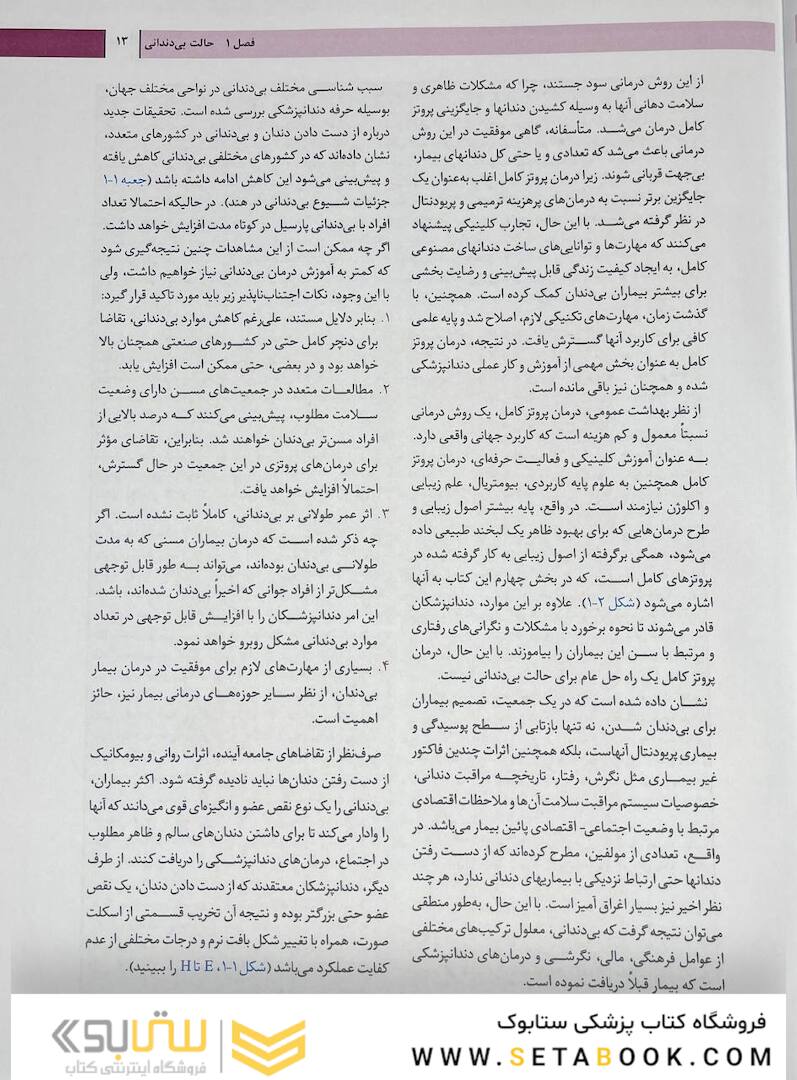 فصل ۱ حالت بی‌دندانی ۱۳
از این روش درمانی سود جستند، چرا که مشکلات ظاهری و
سلامت دهانی آنها به وسیله کشیدن دندانها و جایگزینی پروتز
کامل درمان می‌شد. متأسفانه، گاهی موفقیت در این روش
درمانی باعث می‌شد که تعدادی و یا حتی کل دندانهای بیمار،
بی‌جهت قربانی شوند. زیرا درمان پروتز کامل اغلب به‌عنوان یک
جایگزین برتر نسبت به درمان‌های پرهزینه ترمیمی و پریودنتال
در نظر گرفته می‌شد. با این حال، تجارب کلینیکی پیشنهاد
می‌کنند که مهارت‌ها و توانایی‌های ساخت دندانهای مصنوعی
کامل، به ایجاد کیفیت زندگی قابل پیش‌بینی و رضایت بخشی
برای بیشتر بیماران بی‌دندان کمک کرده است. همچنین، با
گذشت زمان، مهارت‌های تکنیکی لازم، اصلاح شد و پایه علمی
کافی برای کاربرد آنها گسترش یافت. در نتیجه، درمان پروتز
کامل به عنوان بخش مهمی از آموزش و کار عملی دندانپزشکی
شده و همچنان نیز باقی مانده است.
از نظر بهداشت عمومی، درمان پروتز کامل، یک روش درمانی
نسبتاً معمول و کم هزینه است که کاربرد جهانی واقعی دارد.
به عنوان آموزش کلینیکی و فعالیت حرفه‌ای، درمان پروتز
کامل همچنین به علوم پایه کاربردی، بیومتریال، علم زیبایی
و اکلوژن نیازمند است. در واقع، پایه بیشتر اصول زیبایی و
طرح درمان‌هایی که برای بهبود ظاهر یک لبخند طبیعی داده
می‌شود، همگی برگرفته از اصول زیبایی به کار گرفته شده در
پروتزهای کامل است، که در بخش چهارم این کتاب به آنها
اشاره می‌شود (شکل ۲-۱). علاوه بر این موارد، دندانپزشکان
قادر می‌شوند تا نحوه برخورد با مشکلات و نگرانی‌های رفتاری
و مرتبط با سن این بیماران را بیاموزند. با این حال، درمان
پروتز کامل یک راه حل عام برای حالت بی‌دندانی نیست.
نشان داده شده است که در یک جمعیت، تصمیم بیماران
برای بی‌دندان شدن، نه تنها بازتابی از سطح پوسیدگی و
بیماری پریودنتال آنهاست، بلکه همچنین اثرات چندین فاکتور
غیر بیماری مثل نگرش، رفتار، تاریخچه مراقبت دندانی،
خصوصیات سیستم مراقبت سلامت آن‌ها و ملاحظات اقتصادی
مرتبط با وضعیت اجتماعی- اقتصادی پائین بیمار می‌باشد. در
واقع، تعدادی از مولفین، مطرح کرده‌اند که از دست رفتن
دندانها حتی ارتباط نزدیکی با بیماریهای دندانی ندارد، هر چند
نظر اخیر نیز بسیار اغراق آمیز است. با این حال، به‌طور منطقی
می‌توان نتیجه گرفت که بی‌دندانی، معلول ترکیب‌های مختلفی
از عوامل فرهنگی، مالی، نگرشی و درمان‌های دندانپزشکی
است که بیمار قبلاً دریافت نموده است.
سبب شناسی مختلف بی‌دندانی در نواحی مختلف جهان،
بوسیله حرفه دندانپزشکی بررسی شده است. تحقیقات جدید
درباره از دست دادن دندان و بی‌دندانی در کشورهای متعدد،
نشان داده‌اند که در کشورهای مختلفی بی‌دندانی کاهش یافته
و پیش‌بینی می‌شود این کاهش ادامه داشته باشد (جعبه ۱-۱
جزئیات شیوع بی‌دندانی در هند). در حالیکه احتمالا تعداد
افراد با بی‌دندانی پارسیل در کوتاه مدت افزایش خواهد داشت.
اگر چه ممکن است از این مشاهدات چنین نتیجه‌گیری شود
که کمتر به آموزش درمان بی‌دندانی نیاز خواهیم داشت، ولی
با این وجود، نکات اجتناب‌ناپذیر زیر باید مورد تاکید قرار گیرد:
۱. بنابر دلایل مستند، علی‌رغم کاهش موارد بی‌دندانی، تقاضا
برای دنچر کامل حتی در کشورهای صنعتی همچنان بالا
خواهد بود و در بعضی، حتی ممکن است افزایش یابد.
۲. مطالعات متعدد در جمعیت‌های مسن دارای وضعیت
سلامت مطلوب، پیش‌بینی می‌کنند که درصد بالایی از
افراد مسن‌تر بی‌دندان خواهند شد. بنابراین، تقاضای مؤثر
برای درمان‌های پروتزی در این جمعیت در حال گسترش،
احتمالاً افزایش خواهد یافت.
۳. اثر عمر طولانی بر بی‌دندانی، کاملاً ثابت نشده است. اگر
چه ذکر شده است که درمان بیماران مسنی که به مدت
طولانی بی‌دندان بوده‌اند، می‌تواند به طور قابل توجهی
مشکل‌تر از افراد جوانی که اخیراً بی‌دندان شده‌اند، باشد.
این امر دندانپزشکان را با افزایش قابل توجهی در تعداد
موارد بی‌دندانی مشکل روبرو خواهد نمود.
۴. بسیاری از مهارت‌های لازم برای موفقیت در درمان بیمار
بی‌دندان، از نظر سایر حوزه‌های درمانی بیمار نیز، حائز
اهمیت است.
صرف‌نظر از تقاضاهای جامعه آینده، اثرات روانی و بیومکانیک
از دست رفتن دندان‌ها نباید نادیده گرفته شود. اکثر بیماران،
بی‌دندانی را یک نوع نقص عضو و انگیزه‌ای قوی می‌دانند که آنها
را وادار می‌کند تا برای داشتن دندان‌های سالم و ظاهر مطلوب
در اجتماع، درمان‌های دندانپزشکی را دریافت کنند. از طرف
دیگر، دندانپزشکان معتقدند که از دست دادن دندان، یک نقص
عضو حتی بزرگتر بوده و نتیجه آن تخریب قسمتی از اسکلت
صورت، همراه با تغییر شکل بافت نرم و درجات مختلفی از عدم
کفایت عملکرد می‌باشد (شکل ۱-۱، E تا H را ببینید).
فروشگاه کتاب پزشکی ستابوک
WWW.SETABOOK.COM
ستابوک
فروشگاه اینترنتی کتاب